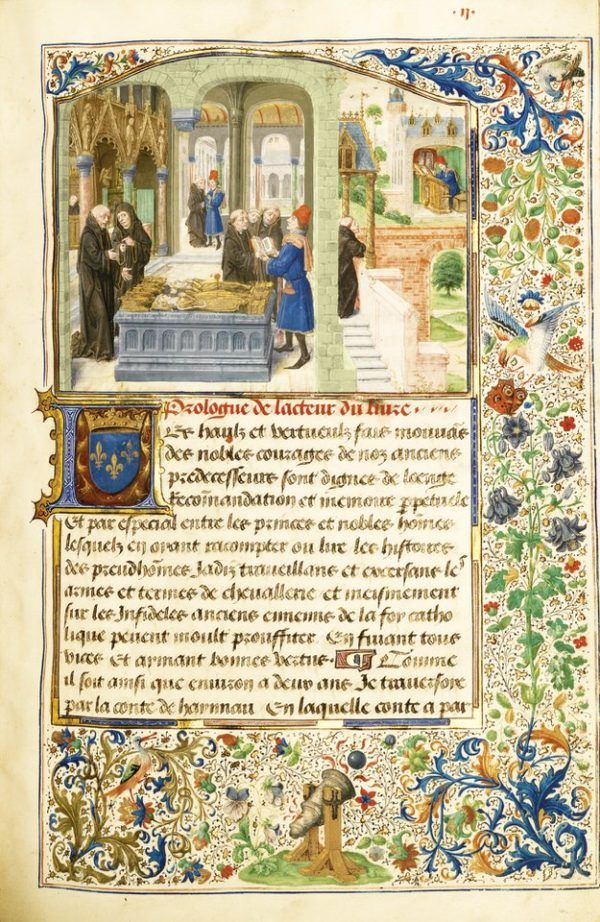 .ij.
Prologue de lacteur du liure
Les haulz et vertueulz fais mouuãs
des nobles courages de noz anciens
predecesseurs sont dignes de loenge
Recom̃andation et memoire ꝑpetuele
Et par especial entre les princes et nobles hõmes
lesquelz en oyant racompter ou lire les histoires
des preudhõmes Jadiz traueillans et excersans leˢ
armes et termes de cheuallerie et meismement
sur les Infideles anciens ennemis de la foy catho
lique peuent moult prouffiter En fuiant tous
vices Et aymant bonnes vertus. ¶ Comme
il soit ainsi que enuiron a deux ans Je trauersoie
par la conte de haynnau En laquelle conte a par